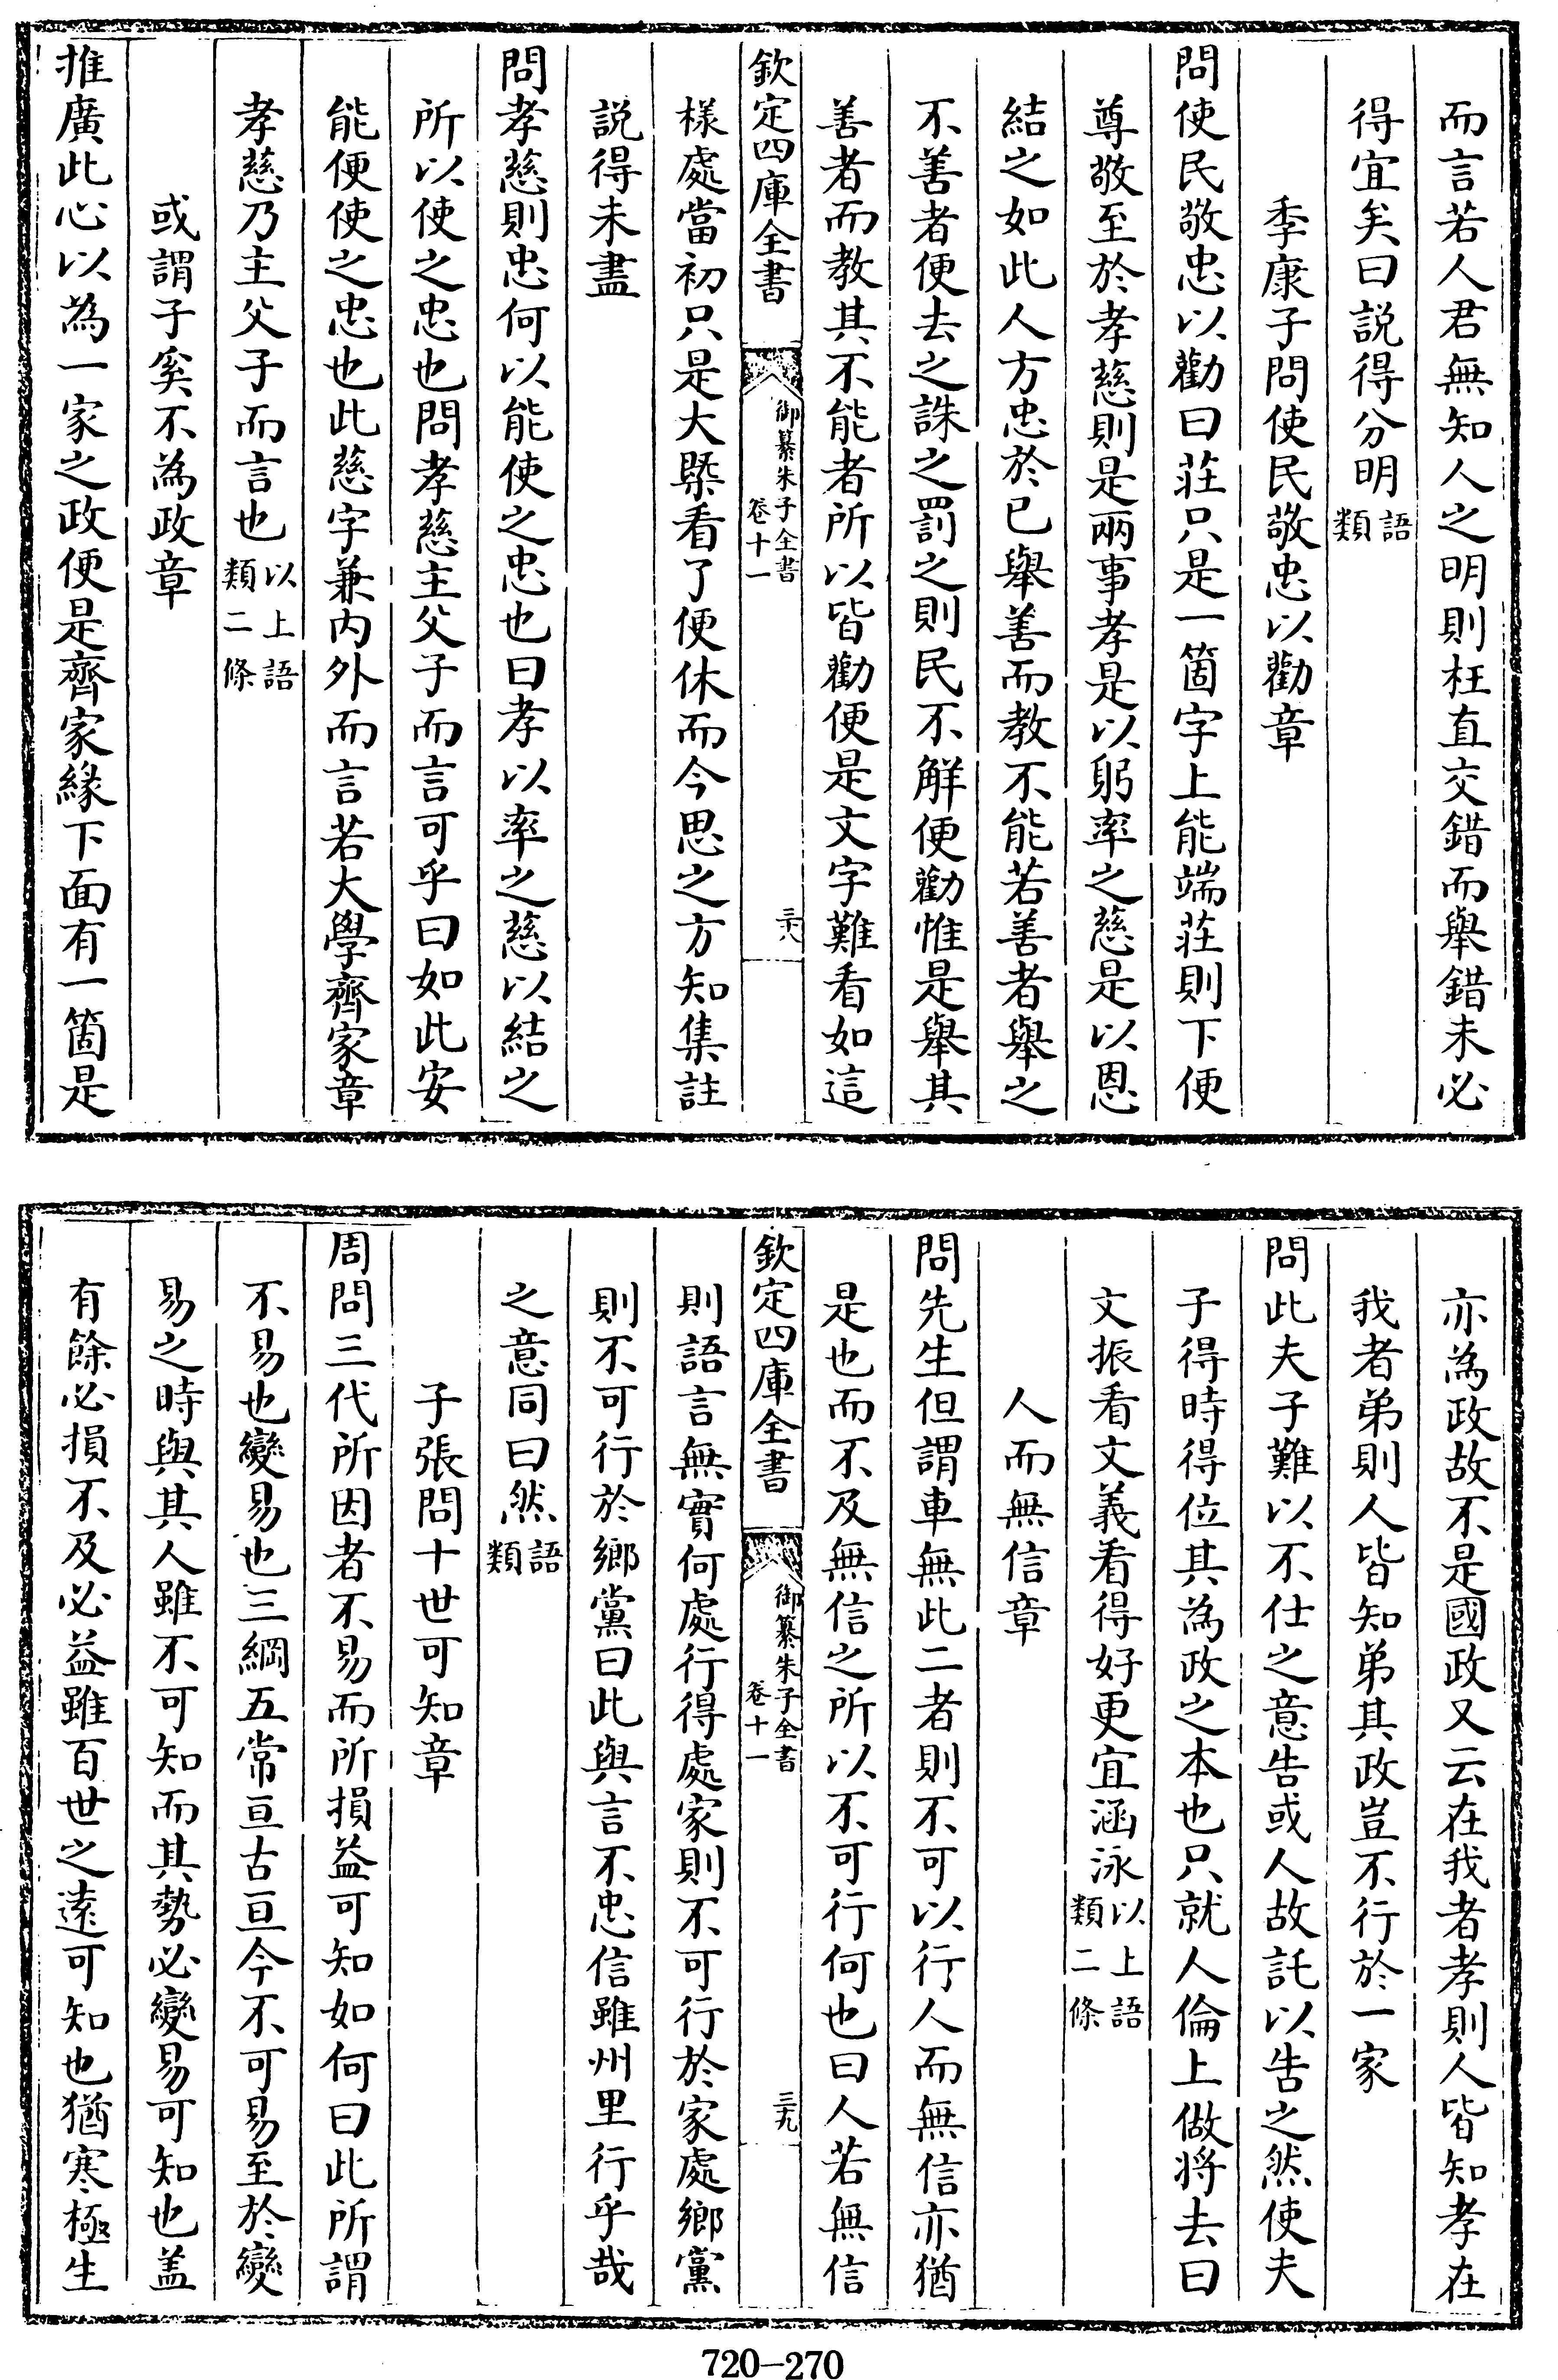 而言若人君無知人之明則枉直交錯而舉錯未必
得宜矣曰説得分明語類
季康子問使民敬忠以勸章
問使民敬忠以勸曰莊只是一箇字上能端莊則下便
尊敬至於孝慈則是兩事孝是以躬率之慈是以恩
結之如此人方忠於已舉善而教不能若善者舉之
不善者便去之誅之罰之則民不解便勸惟是舉其
善者而教其不能者所以皆勸便是文字難看如這
欽定四庫全書
御纂朱子全書
卷十一
三十八
様處當初只是大槩看了便休而今思之方知集註
説得未盡
問孝慈則忠何以能使之忠也曰孝以率之慈以結之
所以使之忠也問孝慈主父子而言可乎曰如此安
能便使之忠也此慈字兼内外而言若大學齊家章
孝慈乃主父子而言也以上語類二條
或謂子奚不為政章
推廣此心以為一家之政便是齊家緣下面有一箇是
亦為政故不是國政又云在我者孝則人皆知孝在
我者弟則人皆知弟其政豈不行於一家
問此夫子難以不仕之意告或人故託以告之然使夫
子得時得位其為政之本也只就人倫上做将去曰
文振看文義看得好更宜涵泳以上語類二條
人而無信章
問先生但謂車無此二者則不可以行人而無信亦猶
是也而不及無信之所以不可行何也曰人若無信
欽定四庫全書
御纂朱子全書
卷十一
三十九
則語言無實何處行得處家則不可行於家處鄉黨
則不可行於鄉黨曰此與言不忠信雖州里行乎哉
之意同曰然語類
子張問十世可知章
周問三代所因者不易而所損益可知如何曰此所謂
不易也變易也三綱五常亘古亘今不可易至於變
易之時與其人雖不可知而其勢必變易可知也盖
有餘必損不及必益雖百世之逺可知也猶寒極生
720-270